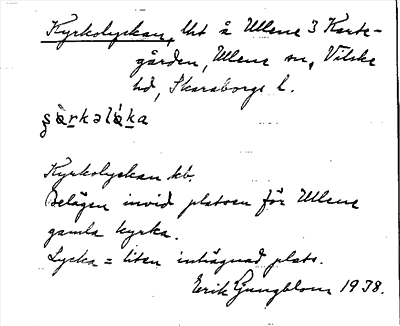 Kyrkolyckan, Urt å Ullene 3 Karte-
gården, Ullene sn, Vilske
hd, Skaraborgs l.
Kyrkolyckan kb.
Belägen invid platsen för Ullene
gamla kyrka.
Lycka = liten inhägnad plats.
Erik Ljungblom 1938.